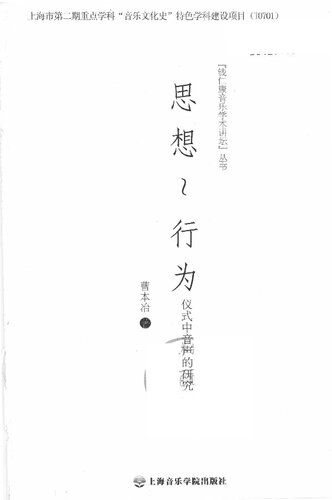 上海市第二期重点学科“音乐文化史”特色学科建设项目（T0701）
『钱仁康音乐学术讲坛』丛书
思想~行为
仪式中音声的研究
曹本冶 著
上海音乐学院出版社